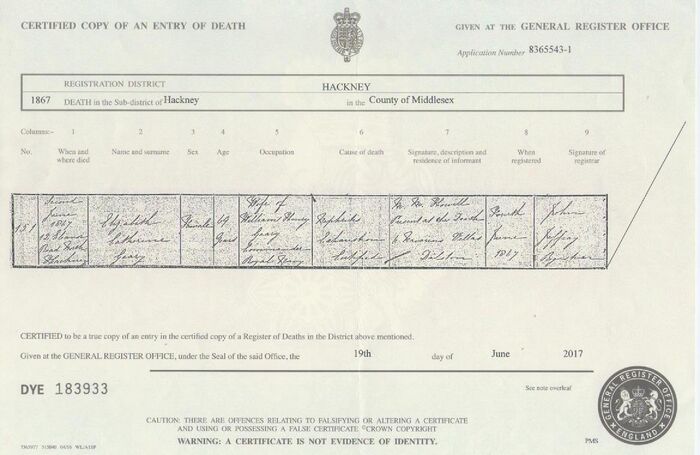 CERTIFIED COPY OF AN ENTRY OF DEATH
GIVEN AT THE GENERAL REGISTER OFFICE
Application Number 8365543-1
REGISTRATION DISTRICT HACKNEY
1867 DEATH in the Sub-district of Hackney in the County of Middlesex
Columns:- 1 2 3 4 5 6 7 8 9
No. When and where died Name and surname Sex Age Occupation Cause of death Signature, description and residence of informant When registered Signature of registrar
151
Second
June
1867
Hackney
Elizabeth
Catherine
Geary
Female
69
Years
Wife of
William Henry
Geary
Commander
Royal Navy
Nephritis
Exhaustion
Certified
Present at the Death
Dalston
Fourth
June
1867
John
Jeffray
Registrar
CERTIFIED to be a true copy of an entry in the certified copy of a Register of Deaths in the District above mentioned.
Given at the GENERAL REGISTER OFFICE, under the Seal of the said Office, the 19th day of June 2017
DYE 183933
See note overleaf
GENERAL REGISTER OFFICE
ENGLAND
CAUTION: THERE ARE OFFENCES RELATING TO FALSIFYING OR ALTERING A CERTIFICATE
AND USING OR POSSESSING A FALSE CERTIFICATE ©CROWN COPYRIGHT
WARNING: A CERTIFICATE IS NOT EVIDENCE OF IDENTITY.
PMS